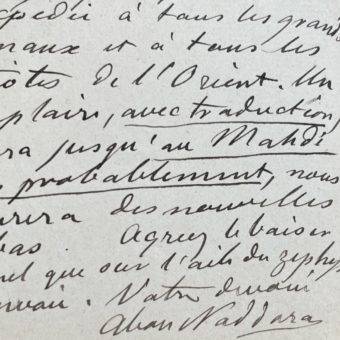 à tous les grands
et à tous les
de l'Orient. Un
avec traduction,
jusqu'au Mahdi
probablement, nous
des nouvelles
bas. Agréez le baiser
que sur l'aile du zéphyr
Votre dévoué
Abou Naddara